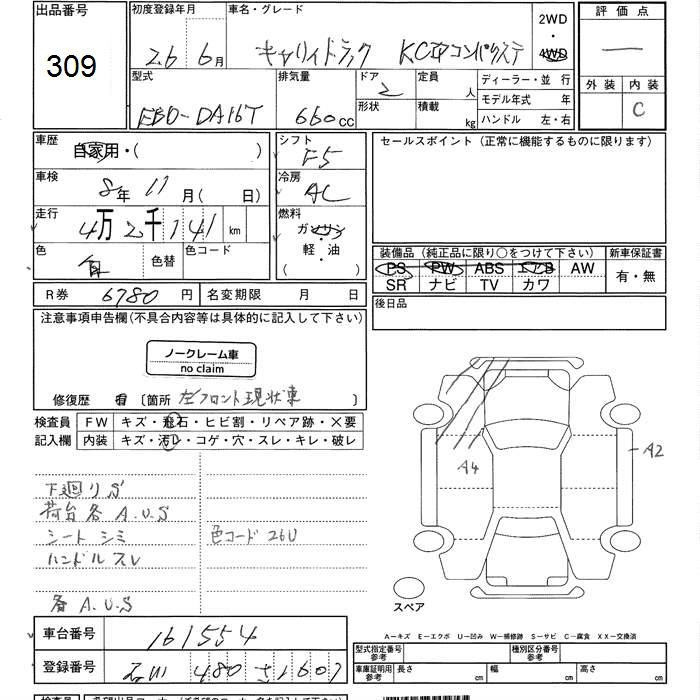 出品番号 309
初度登録年月 26年 6月
車名・グレード キャリィトラック KC エアコンパワステ
2WD・4WD
評価点 —
外装 内装 C
型式 EBD-DA16T
排気量 660cc
ドア 2
形状
定員 人
積載 kg
ディーラー・並 行
モデル年式 年
ハンドル 左・右
車歴 自家用・( )
シフト F5
セールスポイント (正常に機能するものに限ります)
車検 8年 11月( 日)
冷房 AC
走行 4万2千141km
燃料 ガソリン・軽・油 ( )
色 白 色替
色コード
装備品 (純正品に限り○をつけて下さい)
PS PW ABS エアB AW
SR ナビ TV カワ
新車保証書 有・無
R券 6780円
名変期限 月 日
後日品
注意事項申告欄(不具合内容等は具体的に記入して下さい)
ノークレーム車
no claim
修復歴 有 〔箇所 左フロント現状車 〕
検査員記入欄
FW キズ・飛石・ヒビ割・リペア跡・×要
内装 キズ・汚レ・コゲ・穴・スレ・キレ・破レ
下廻りS
荷台各A.U.S
シートシミ
色コード26U
ハンドルスレ
各A.U.S
A4
A2
スペア
A−キズ E−エクボ U−凹み W−補修跡 S−サビ C−腐食 XX−交換済
車台番号 161554
登録番号 石川 480 さ1607
型式指定番号 参考
種別区分番号 参考
車庫証明用 参考 長さ cm 幅 cm 高さ cm